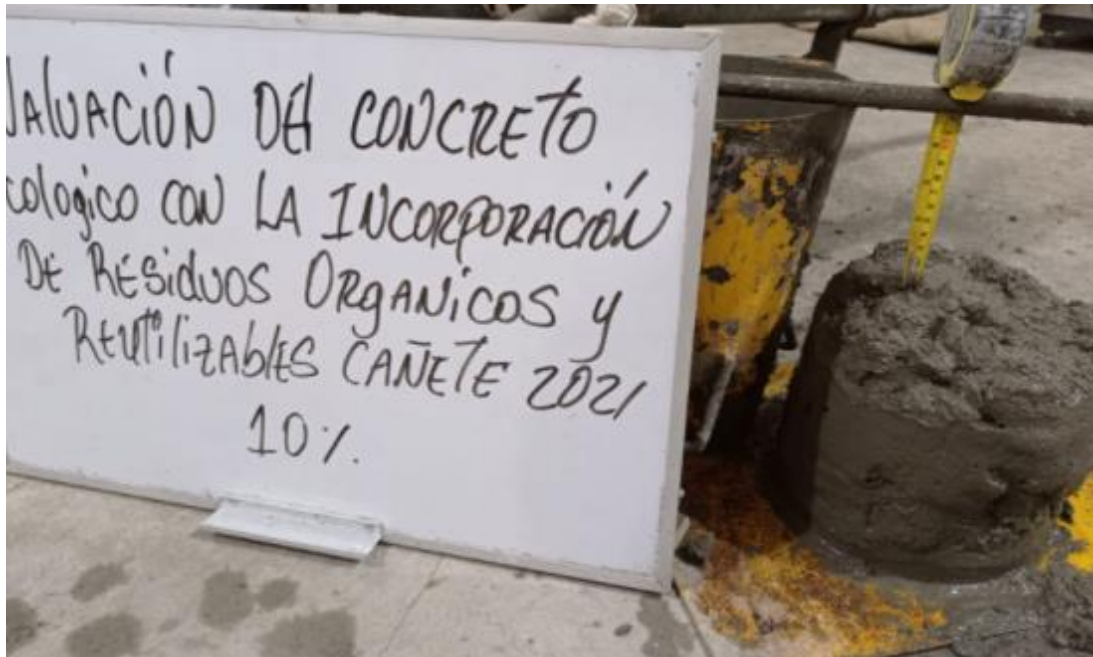 VALUACIÓN DEL CONCRETO
cologico CON LA INCORPORACIÓN
DE RESIDUOS ORGANICOS y
REUTILIZABLES CAÑETE 2021
10%.